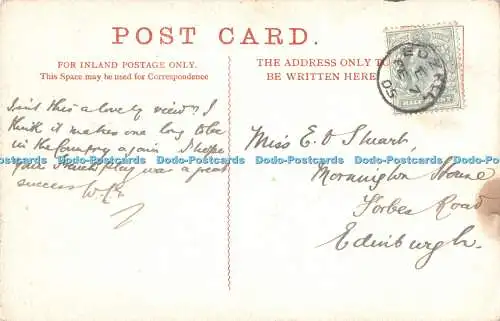 POST CARD.
FOR INLAND POSTAGE ONLY.
This Space may be used for Correspondence
THE ADDRESS ONLY TO
BE WRITTEN HERE
EDZELL
05
Isn't this a lovely view? I
think it makes one long to be
in the Country again I hope
your French play was a great
success
Miss E. D Stuart.
Mornington House
Forbes Road
Edinburgh.
Dodo-Postcards Dodo-Postcards Dodo-Postcards Dodo-Postcards Dodo-Postcards Dodo-Postcards